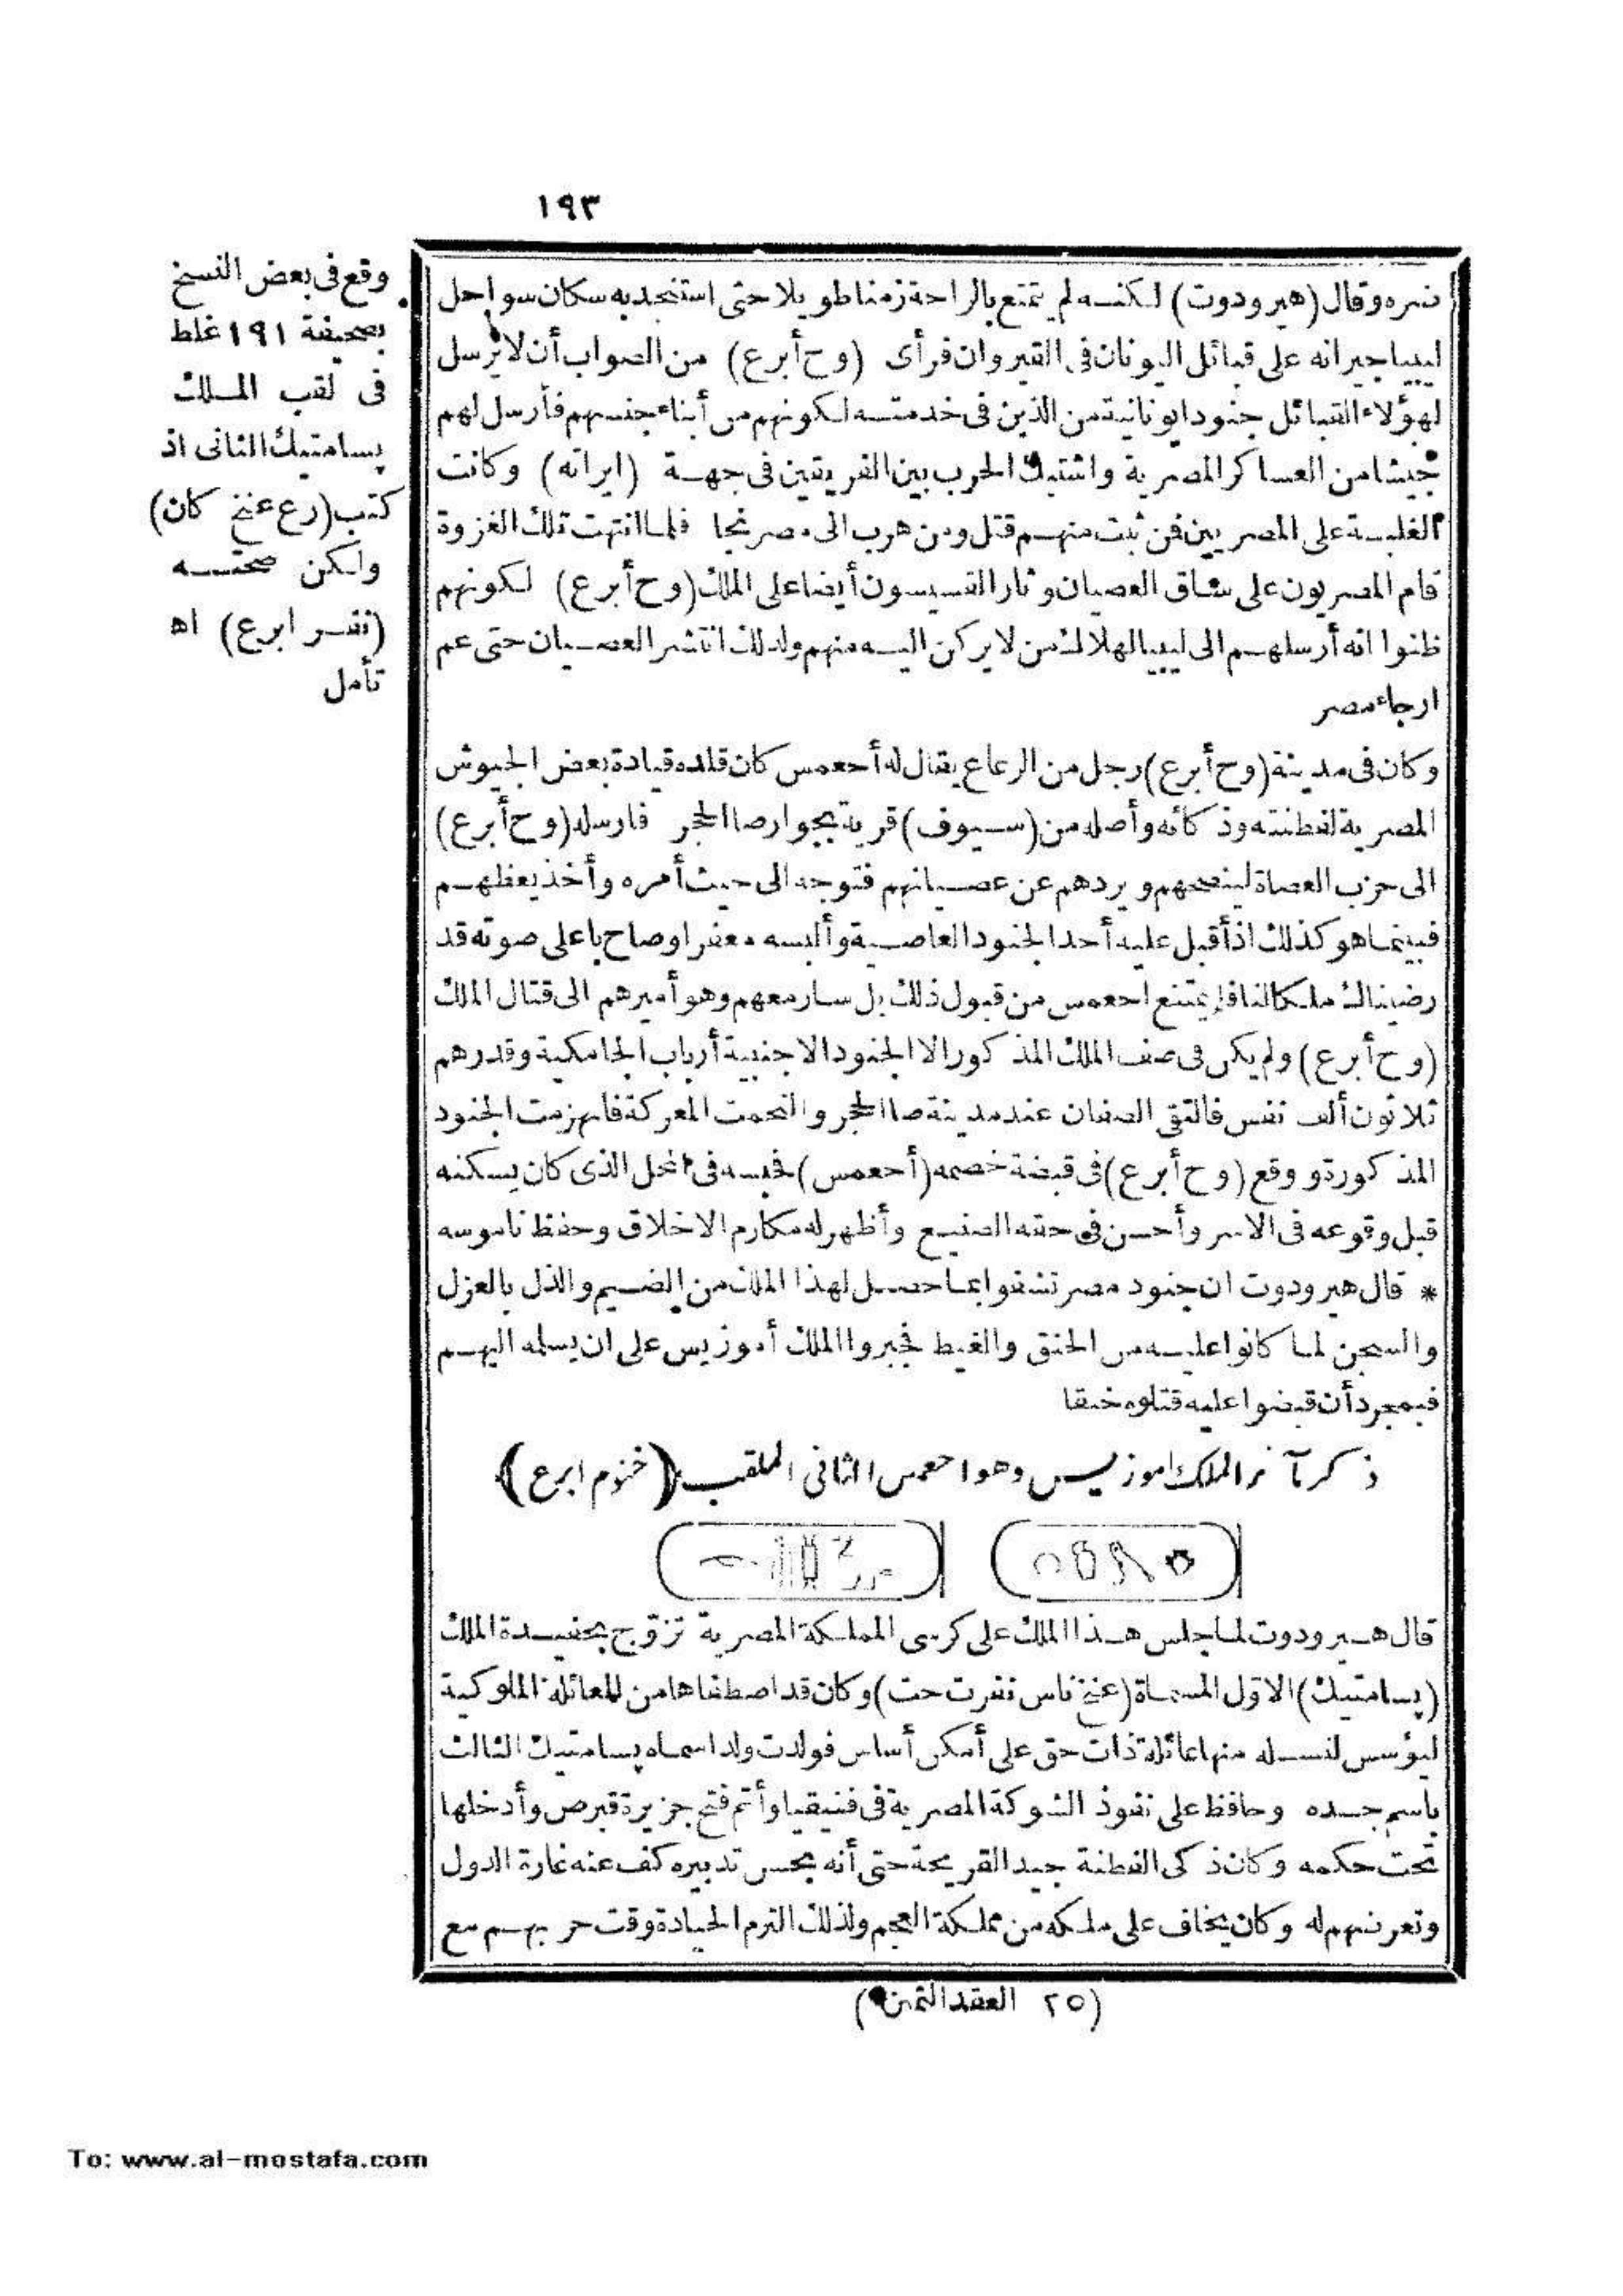 ١٩٣
وقع فى بعض النسخ
بصحيفة ١٩١ غلط
فى لقب الملك
پسامتيك الثانى اذ
كتب (رع عنخ كان)
ولكن صحته
(نفر ابرع) اه
تأمل
ضره وقال (هيرودوت) لكنه لم يتمتع بالراحة زمنا طويلا حتى استنجد به سكان سواحل
ليبيا جيرانه على قبائل اليونان فى القيروان فرأى (وح أبرع) من الصواب أن لا يرسل
لهؤلاء القبائل جنودا يونانية من الذين فى خدمته لكونهم من أبناء جنسهم فأرسل لهم
جيشا من العساكر المصرية واشتبك الحرب بين الفريقين فى جهة (ايراته) وكانت
الغلبة على المصريين فمن ثبت منهم قتل ومن هرب الى مصر نجا فلما انتهت تلك الغزوة
قام المصريون على ساق العصيان وثار القسيسون أيضا على الملك (وح أبرع) لكونهم
ظنوا انه أرسلهم الى ليبيا لهلاك من لا يركن اليه منهم ولذلك انتشر العصيان حتى عم
ارجاء مصر
وكان فى مدينة (وح أبرع) رجل من الرعاع يقال له أحعمس كان قلده قيادة بعض الجيوش
المصرية لفطنته وذكائه وأصله من (سيوف) قرية بجوار صا الحجر فارسله (وح أبرع)
الى حزب العصاة لينصحهم ويردهم عن عصيانهم فتوجه الى حيث أمره وأخذ يعظهم
فبينما هو كذلك اذ أقبل عليه أحد الجنود العاصية وألبسه مغفرا وصاح باعلى صوته قد
رضيناك ملكا لنا فلم يمتنع احعمس من قبول ذلك بل سار معهم وهو أميرهم الى قتال الملك
(وح أبرع) ولم يكن فى صف الملك المذكور الا الجنود الاجنبية أرباب الجامكية وقدرهم
ثلاثون ألف نفس فالتقى الصفان عند مدينة صا الحجر والتحمت المعركة فانهزمت الجنود
المذكورة ووقع (وح أبرع) فى قبضة خصمه (أحعمس) فحبسه فى المحل الذى كان يسكنه
قبل وقوعه فى الاسر وأحسن فى حقه الصنيع وأظهر له مكارم الاخلاق وحفظ ناموسه
* قال هيرودوت ان جنود مصر تشفوا بما حصل لهذا الملك من الضيم والذل بالعزل
والسجن لما كانوا عليه من الحنق والغيظ فجبروا الملك أموزيس على ان يسلمه اليهم
فبمجرد أن قبضوا عليه قتلوه خنقا
ذكر مآثر الملك اموزيس وهو احعمس الثانى الملقب (خنوم ابرع)
قال هيرودوت لما جلس هذا الملك على كرسى المملكة المصرية تزوّج بحفيدة الملك
(پسامتيك) الاوّل المسماة (عنخ ناس نفرت حت) وكان قد اصطفاها من العائلة الملوكية
ليؤسس لنسله منها عائلة ذات حق على أمكن أساس فولدت ولدا سماه پسامتيك الثالث
باسم جده وحافظ على نفوذ الشوكة المصرية فى فنيقيا وأتم فتح جزيرة قبرص وأدخلها
تحت حكمه وكان ذكى الفطنة جيد القريحة حتى أنه بحسن تدبيره كف عنه غارة الدول
وتعرضهم له وكان يخاف على ملكه من مملكة العجم ولذلك التزم الحيادة وقت حربهم مع
(٢٥ العقد الثمين)
To: www.al-mostafa.com